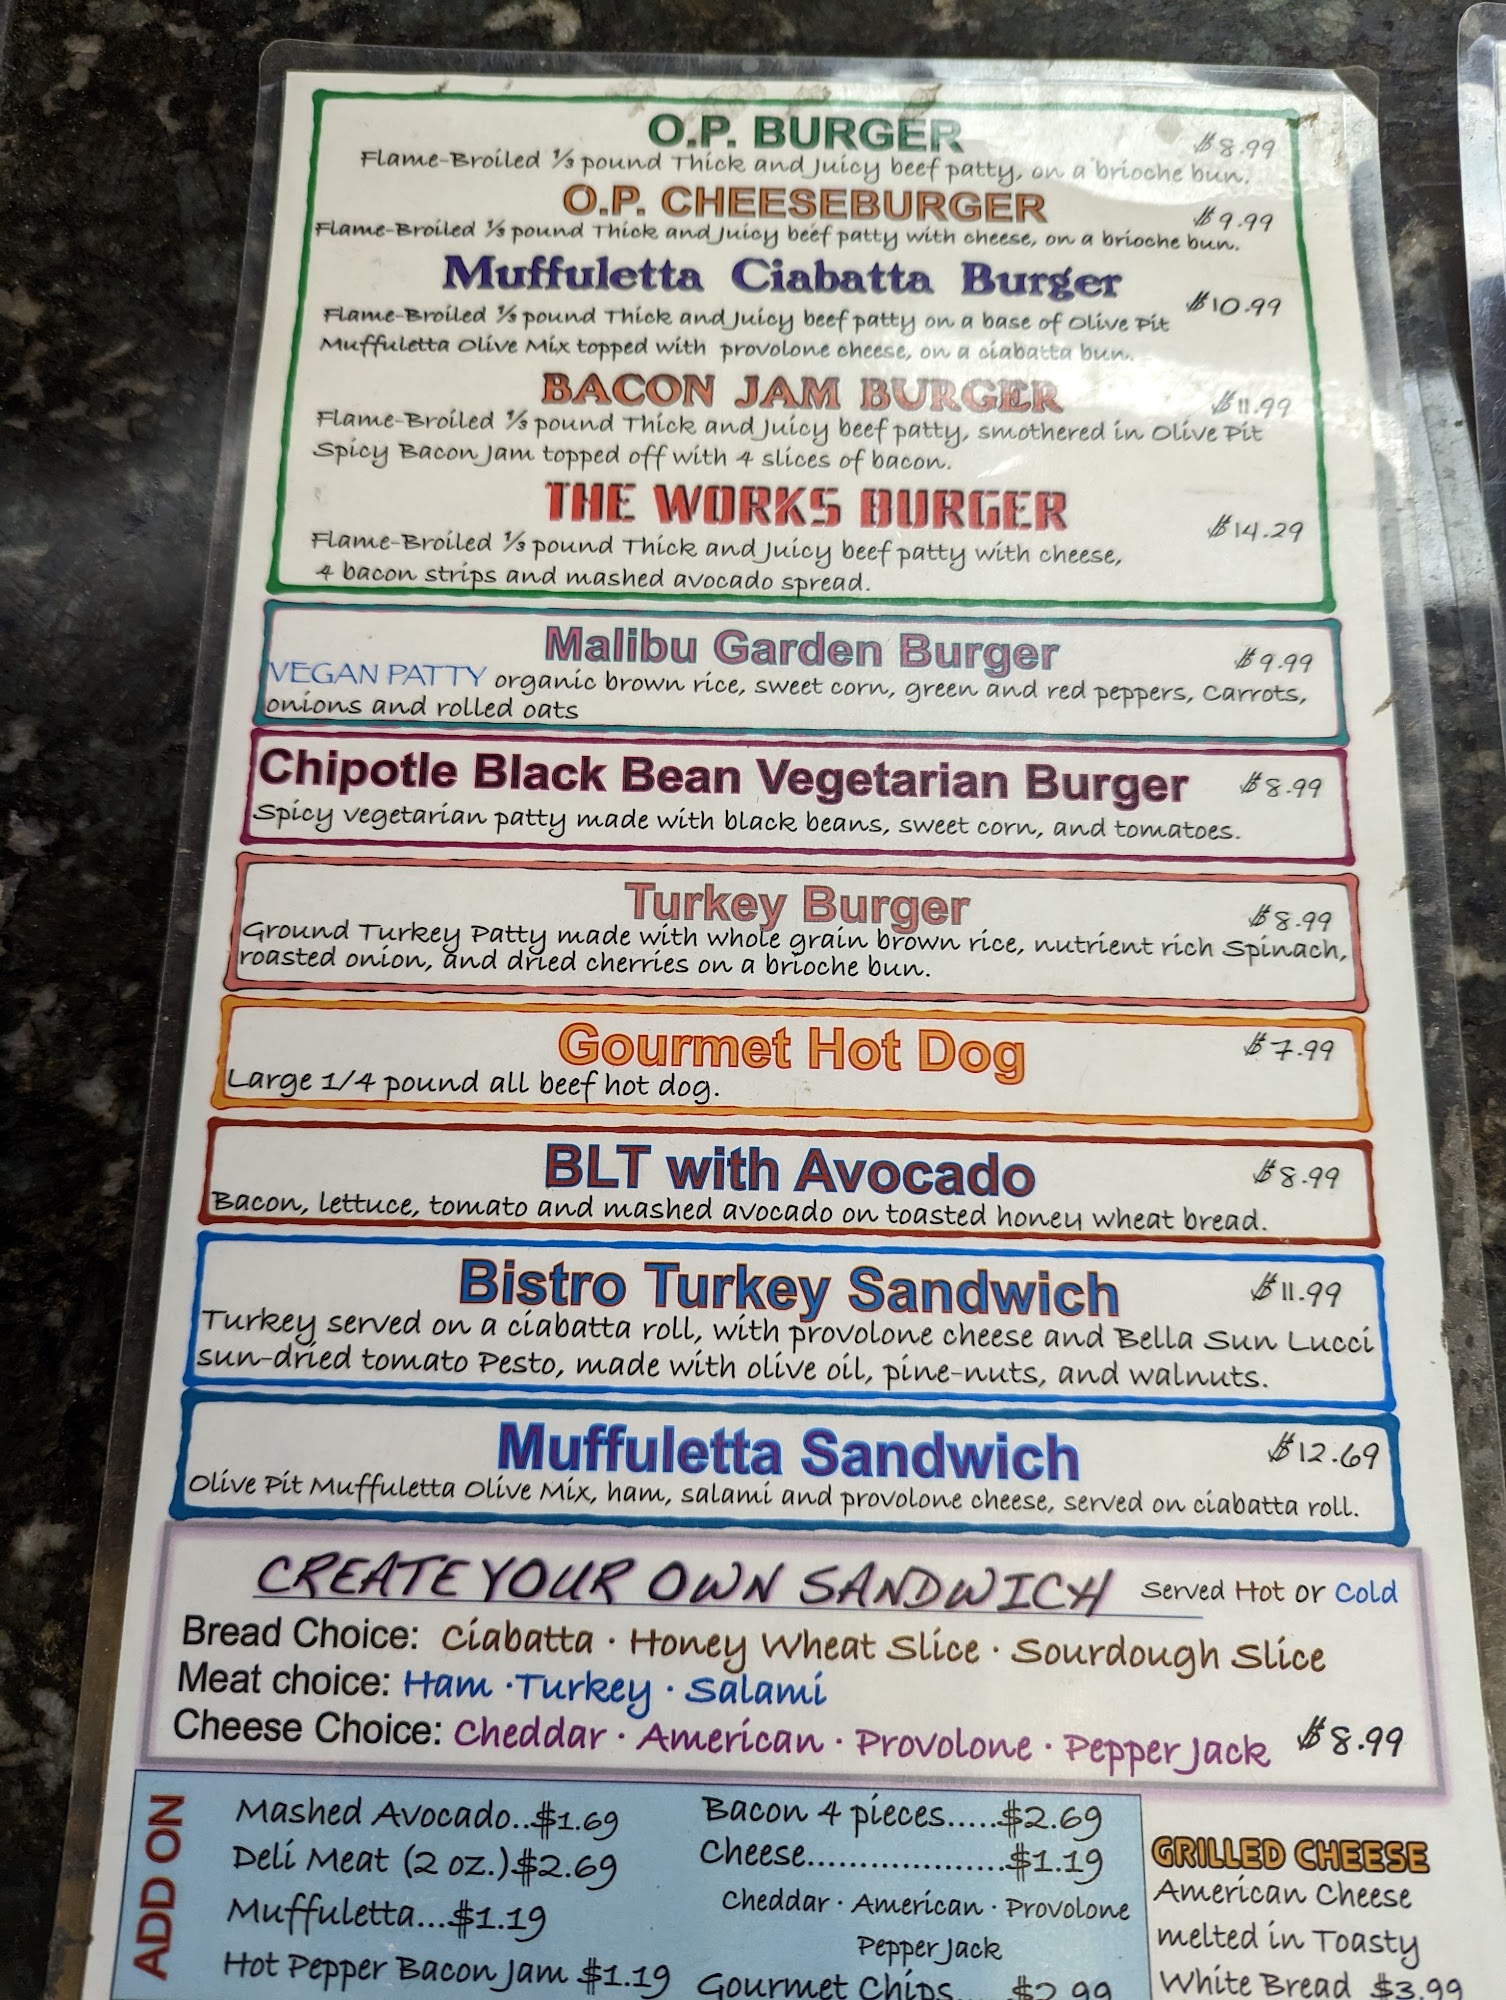 O.P. BURGER $8.99
Flame-Broiled ⅓ pound Thick and Juicy beef patty, on a brioche bun.
O.P. CHEESEBURGER $9.99
Flame-Broiled ⅓ pound Thick and Juicy beef patty with cheese, on a brioche bun.
Muffuletta Ciabatta Burger $10.99
Flame-Broiled ⅓ pound Thick and Juicy beef patty on a base of Olive Pit
Muffuletta Olive Mix topped with provolone cheese, on a ciabatta bun.
BACON JAM BURGER $11.99
Flame-Broiled ⅓ pound Thick and Juicy beef patty, smothered in Olive Pit
Spicy Bacon Jam topped off with 4 slices of bacon.
THE WORKS BURGER $14.29
Flame-Broiled ⅓ pound Thick and Juicy beef patty with cheese,
4 bacon strips and mashed avocado spread.
Malibu Garden Burger $9.99
VEGAN PATTY organic brown rice, sweet corn, green and red peppers, Carrots,
onions and rolled oats
Chipotle Black Bean Vegetarian Burger $8.99
Spicy vegetarian patty made with black beans, sweet corn, and tomatoes.
Turkey Burger $8.99
Ground Turkey Patty made with whole grain brown rice, nutrient rich Spinach,
roasted onion, and dried cherries on a brioche bun.
Gourmet Hot Dog $7.99
Large 1/4 pound all beef hot dog.
BLT with Avocado $8.99
Bacon, lettuce, tomato and mashed avocado on toasted honey wheat bread.
Bistro Turkey Sandwich $11.99
Turkey served on a ciabatta roll, with provolone cheese and Bella Sun Lucci
sun-dried tomato Pesto, made with olive oil, pine-nuts, and walnuts.
Muffuletta Sandwich $12.69
Olive Pit Muffuletta Olive Mix, ham, salami and provolone cheese, served on ciabatta roll.
CREATE YOUR OWN SANDWICH Served Hot or Cold
Bread Choice: Ciabatta · Honey Wheat Slice · Sourdough Slice
Meat choice: Ham · Turkey · Salami
Cheese Choice: Cheddar · American · Provolone · Pepper Jack $8.99
ADD ON
Mashed Avocado..$1.69
Deli Meat (2 oz.)$2.69
Muffuletta...$1.19
Hot Pepper Bacon Jam $1.19
Bacon 4 pieces.....$2.69
Cheese....................$1.19
Cheddar · American · Provolone
Pepper Jack
Gourmet Chips.... $2.99
GRILLED CHEESE
American Cheese
melted in Toasty
White Bread $3.99